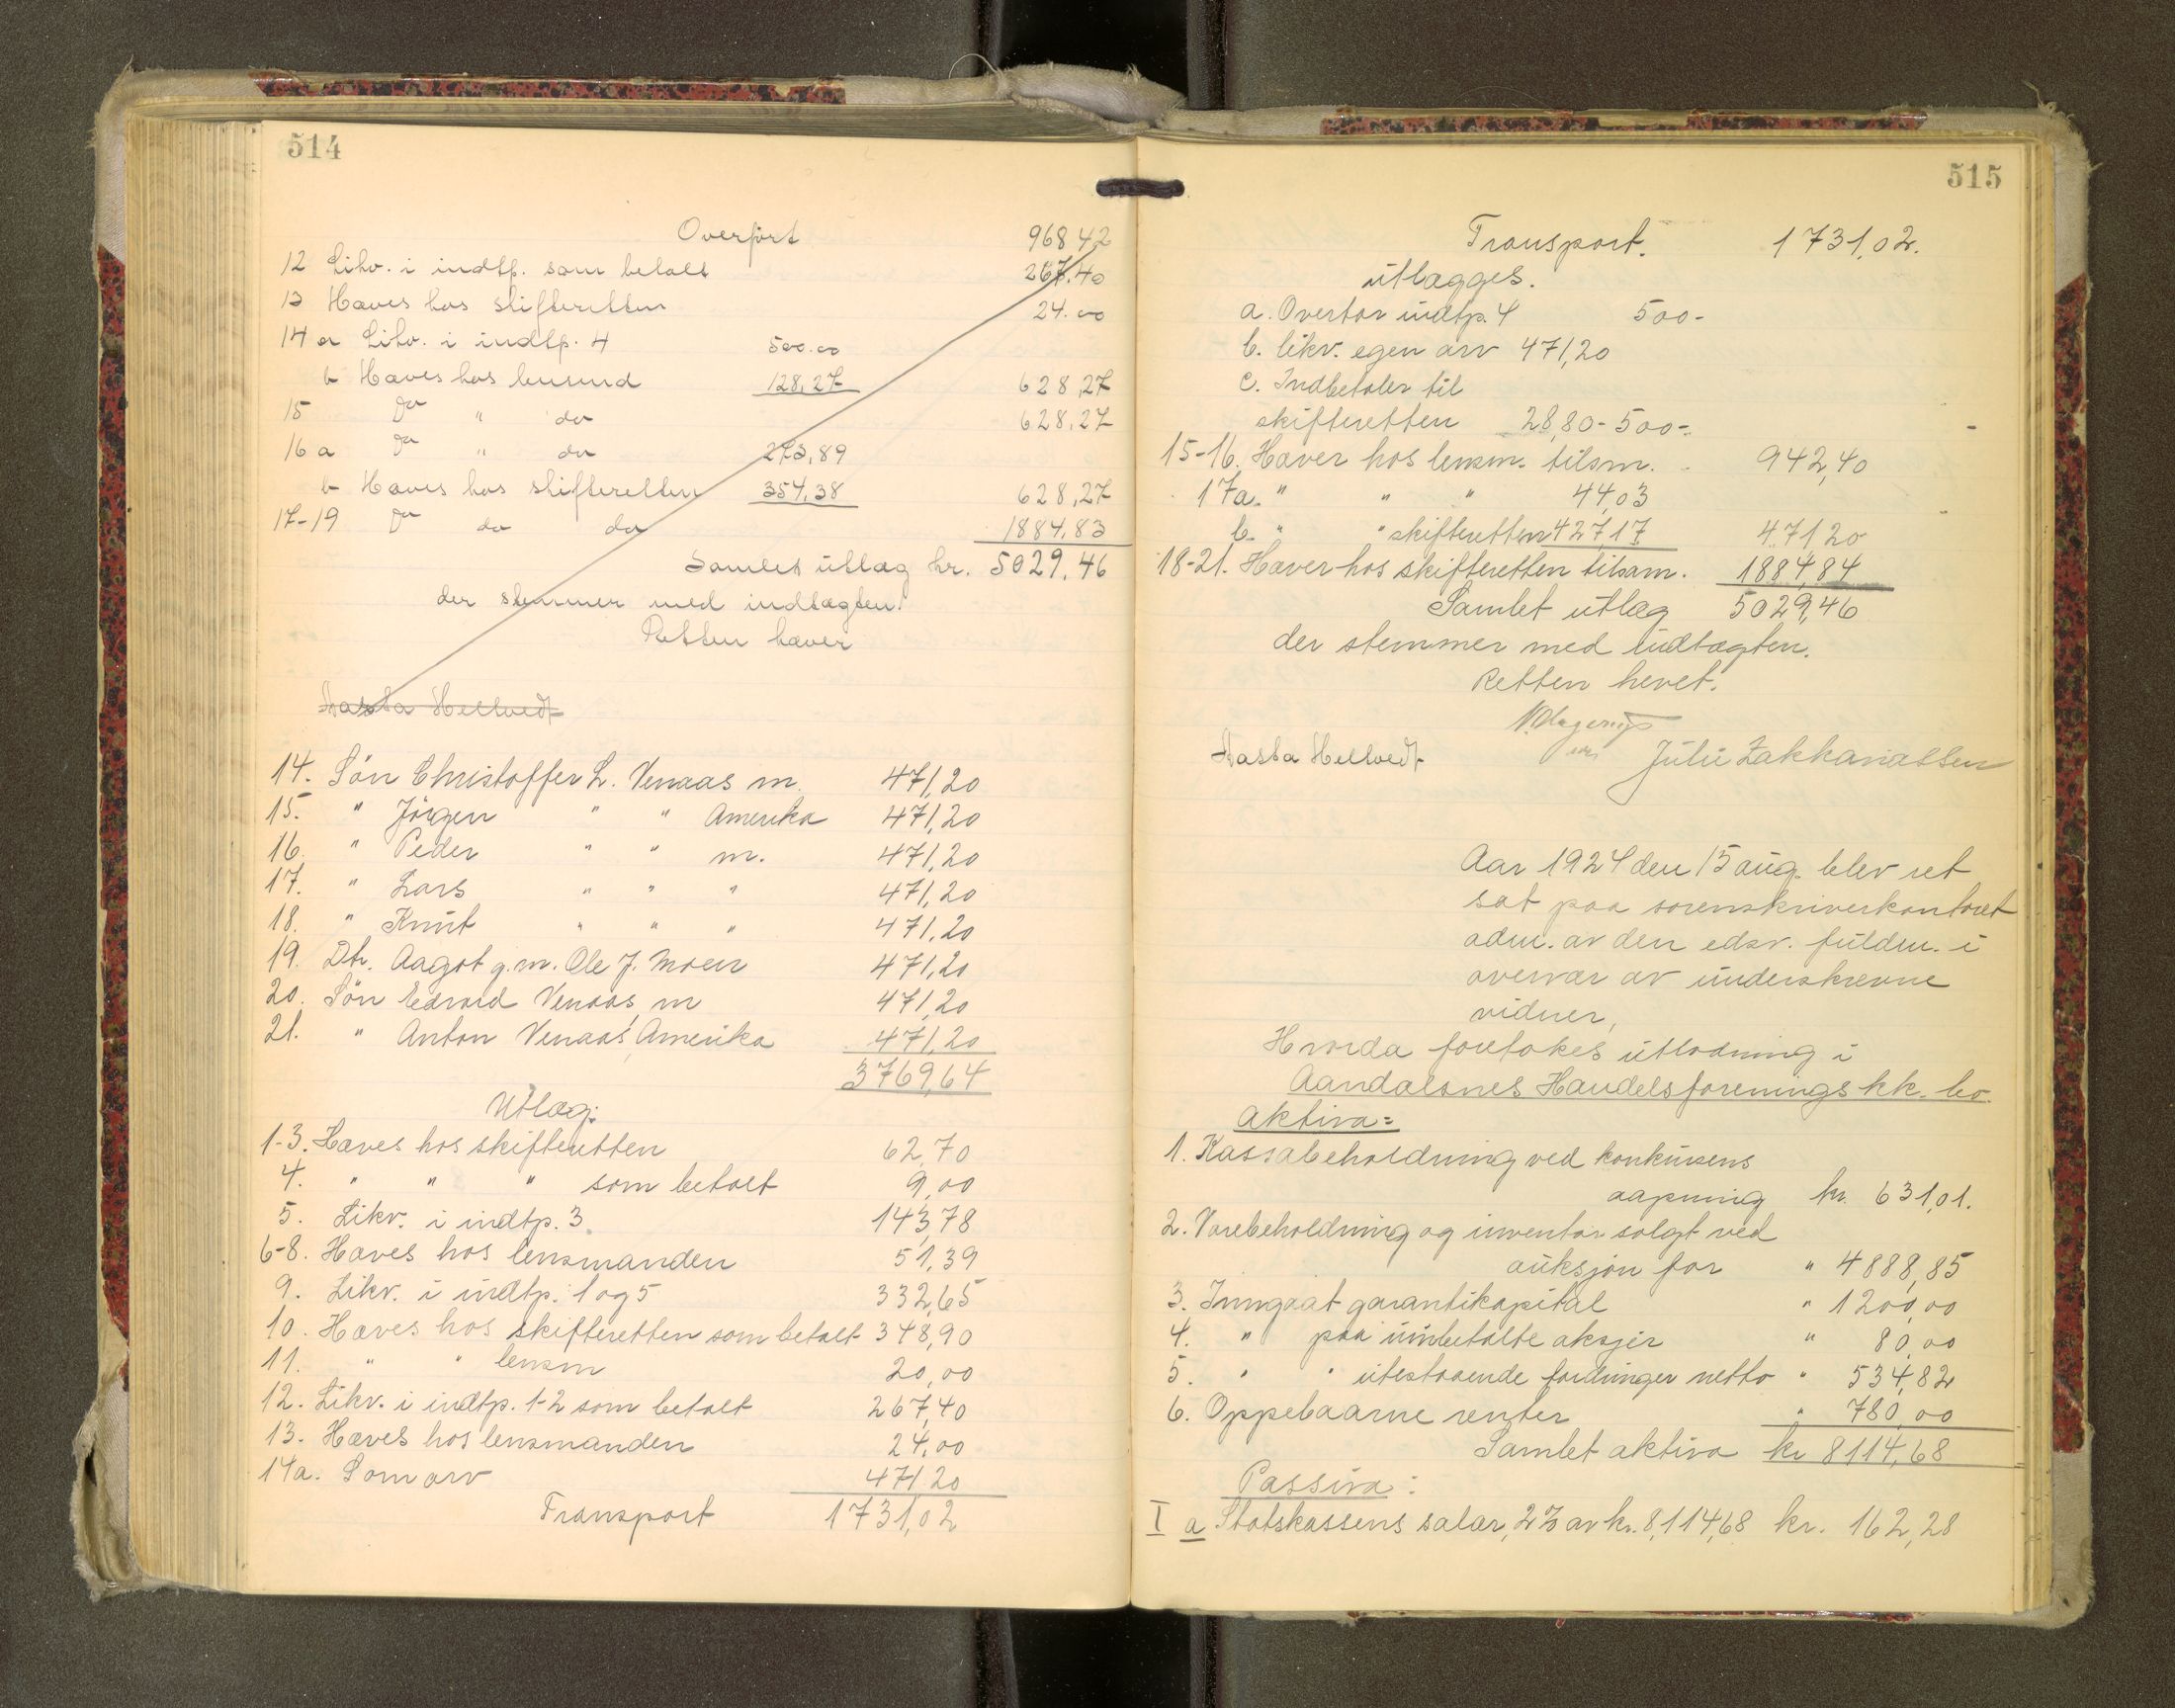 514
Overført 968 42
12 Likv. i indtp. som betalt 267.40
13 Haves hos skifteretten 24.00
14 a Likv. i indtp. 4 500.00
b Haves hos lensmd 128,27 628,27
15 do " do 628,27
16 a do " do 273,89
b Haves hos skifteretten 354,38 628,27
17-19 do do do 1884,83
Samlet utlæg kr. 5029,46
der stemmer med indtægten.
Retten hæver
Aasta Hellvedt
14. Søn Christoffer L. Venaas m. 471,20
15. " Jörgen " " Amerika 471,20
16. " Peder " " m. 471,20
17. " Lars " " " 471,20
18. " Knut " " " 471,20
19. Dtr. Aagot g.m. Ole J. Moen 471,20
20. Søn Edvard Venaas, m 471,20
21. " Anton Venaas, Amerika 471,20
3769,64
Utlæg:
1-3. Haves hos skifteretten 62,70
4. " " " som betalt 9,00
5. Likv. i indtp. 3. 143,78
6-8. Haves hos lensmanden 51,39
9. Likv. i indtp. 1 og 5 332,65
10. Haves hos skifteretten som betalt 348,90
11. " " lensm 20,00
12. Likv. i indtp. 1-2 som betalt 267,40
13. Haves hos lensmanden 24,00
14a. Som arv 471 20
Transport 1731,02
515
Transport. 1731,02.
utlægges.
a. Overtar indtp. 4 500-
b. likv. egen arv 471,20
c. Indbetaler til
skifteretten 28,80 - 500 -
15-16. Haver hos lensm. tilsm. 942,40
17a. " " " 44,03
b. " " skifteretten 427,17 471 20
18-21. Haver hos skifteretten tilsam. 1884,84
Samlet utlæg 5029,46
der stemmer med indtægten.
Retten hevet.
Aasta Hellvedt Julie Zakkariassen
Aar 1924 den 15 aug. blev ret
sat paa sorenskriverkontoret
adm. av den edsv. fuldm. i
overvær av underskrevne
vidner,
Hvorda foretokes utlodning i
Aandalsnes Handelsforenings kk. bo.
Aktiva:
1. Kassabeholdning ved konkursens
aapning kr. 631,01.
2. Varebeholdning og inventar solgt ved
auksjon for " 4888,85
3. Inngaat garantikapital " 1200,00
4. " paa uinbetalte aksjer " 80,00
5. " " utestaaende fordringer netto " 534,82
6. Oppebaarne renter " 780,00
Samlet aktiva kr 8114,68
Passiva:
I a Statskassens salær, 2% av kr. 8,114,68 kr. 162,28